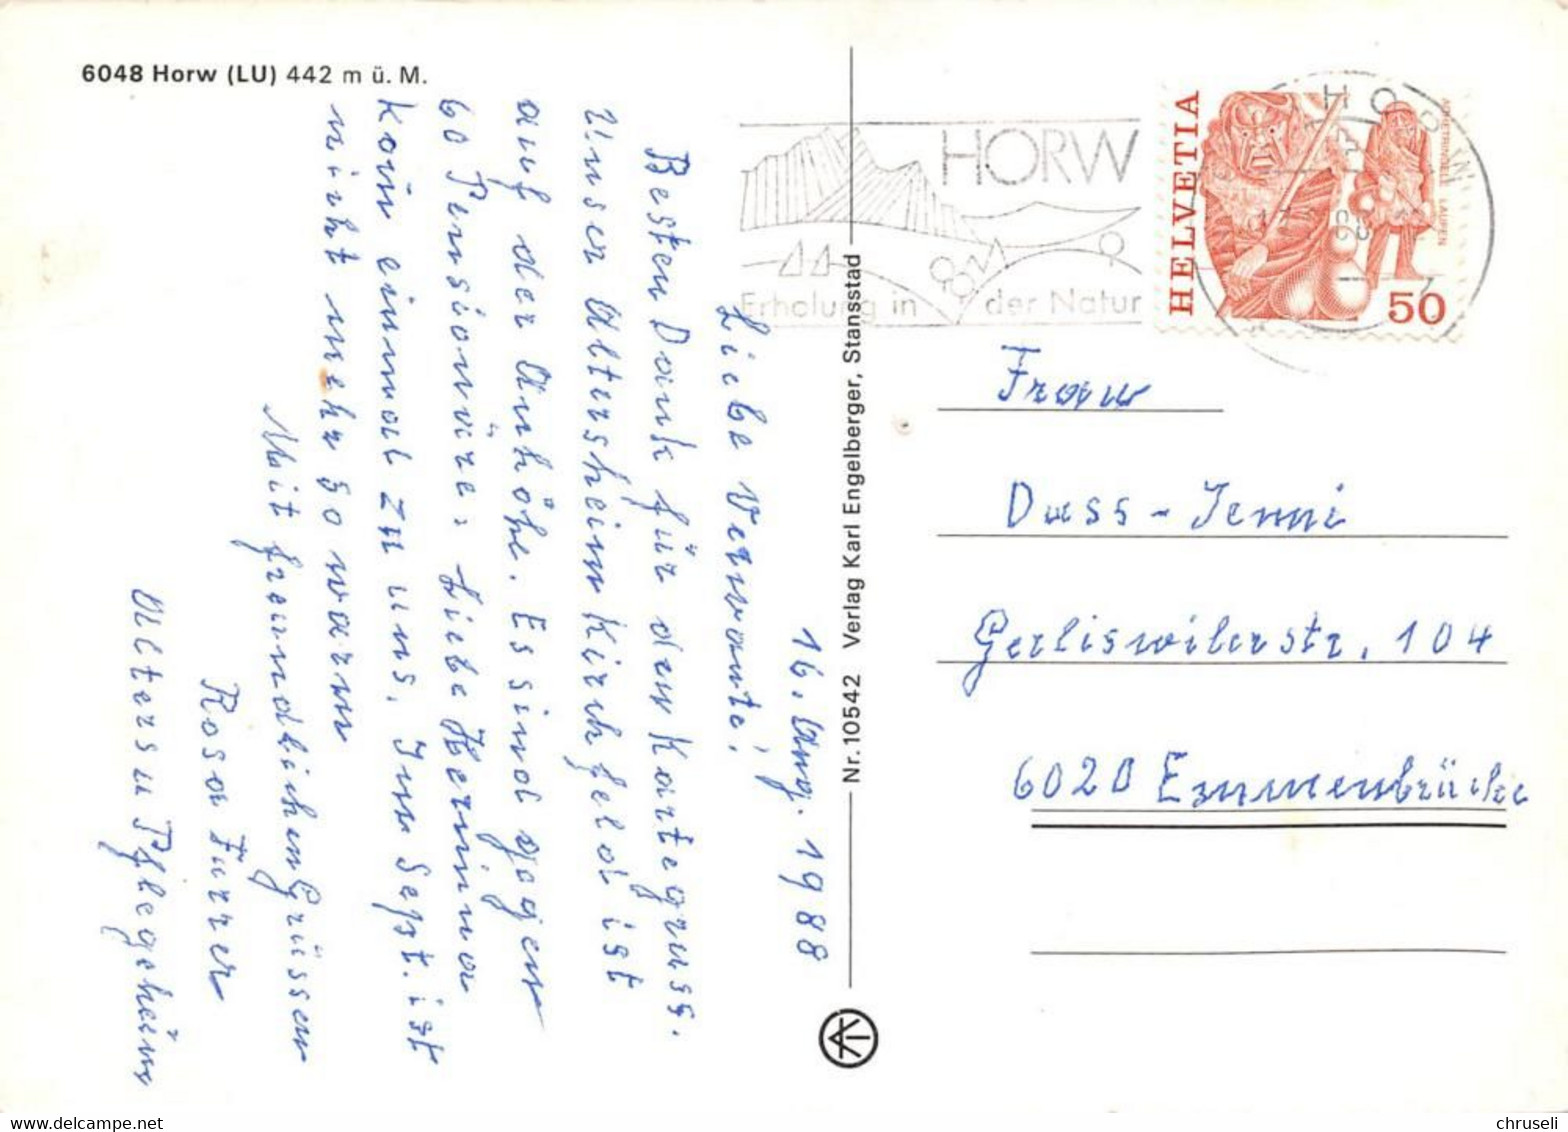 6048 Horw (LU) 442 m ü. M.
16. Aug. 1988
Liebe Verwante!
Besten Dank für den Kartegruss.
Unser Altersheim Kirchfeld ist
auf der Anhöhe. Es sind gegen
60 Pensionäre. Liebe Hermina
Kom einmal zu uns. Im Sept. ist
nicht mehr so warm
Mit freundlichen Grüssen
Rosa Furrer
Alters u Pflegeheim
Nr. 10542 Verlag Karl Engelberger, Stansstad
HORW
Erholung in der Natur
HORW
HELVETIA
ACHETRINGELER LAUPEN
50
Frau
Duss-Jenni
Gerliswilerstr. 104
6020 Emmenbrücke
chruseli